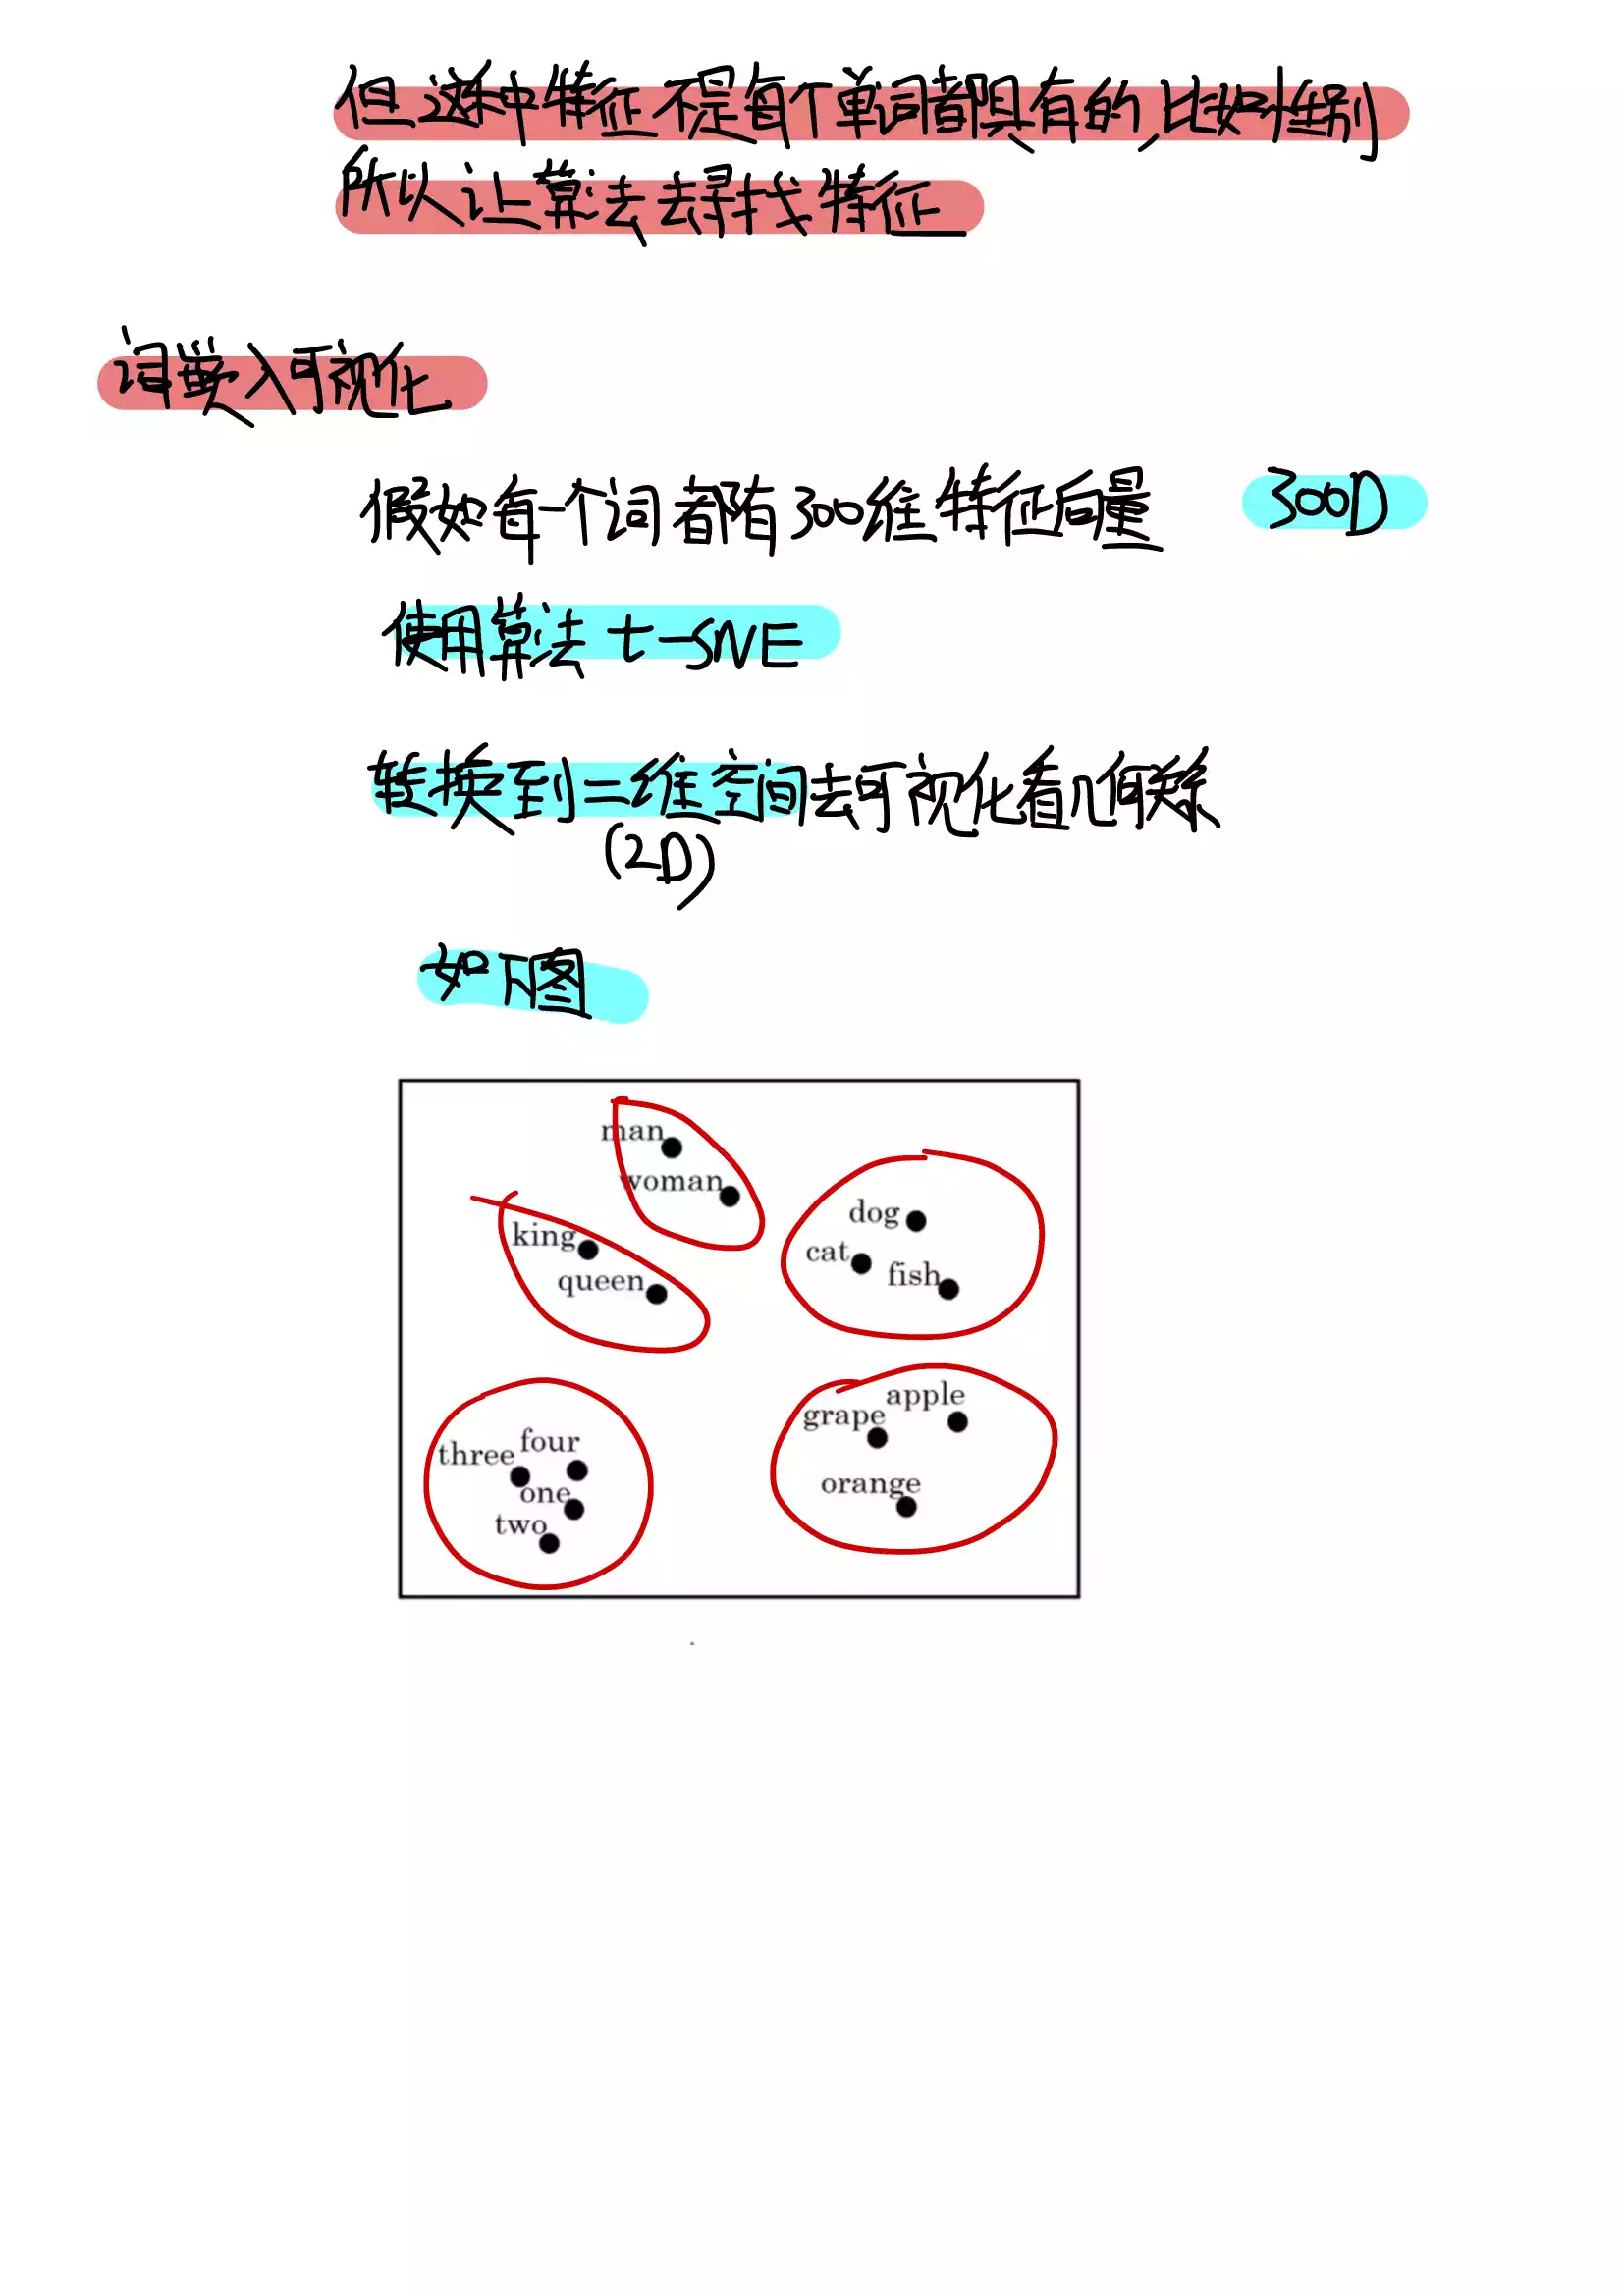 但这种特征不是每个单词都具有的,比如性别
所以让算法去寻找特征
词嵌入可视化
假如每一个词都有300维特征向量 300D
使用算法 t-SNE
转换到二维空间去可视化看几何关系
(2D)
如下图
man
woman
king
queen
dog
cat
fish
apple
grape
orange
four
three
one
two